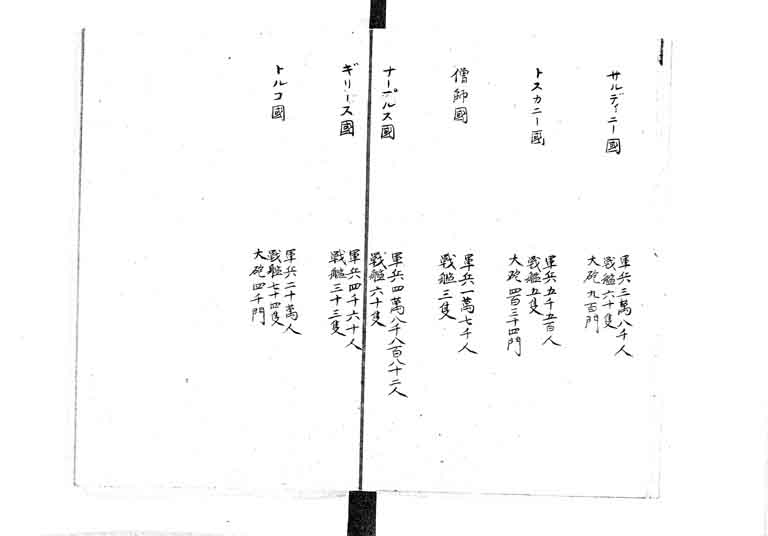 サルディニー國
軍兵三萬八千人
戦艦六十隻
大砲九百門
トスカニー國
軍兵五千五百人
戦艦五隻
大砲四百三十四門
僧師國
軍兵一萬七千人
戦艦三隻
ナープルス國
軍兵四萬八千八百八十二人
戦艦六十隻
ギリース國
軍兵四千六十人
戦艦三十三隻
トルコ國
軍兵二十萬人
戦艦七十四隻
大砲四千門